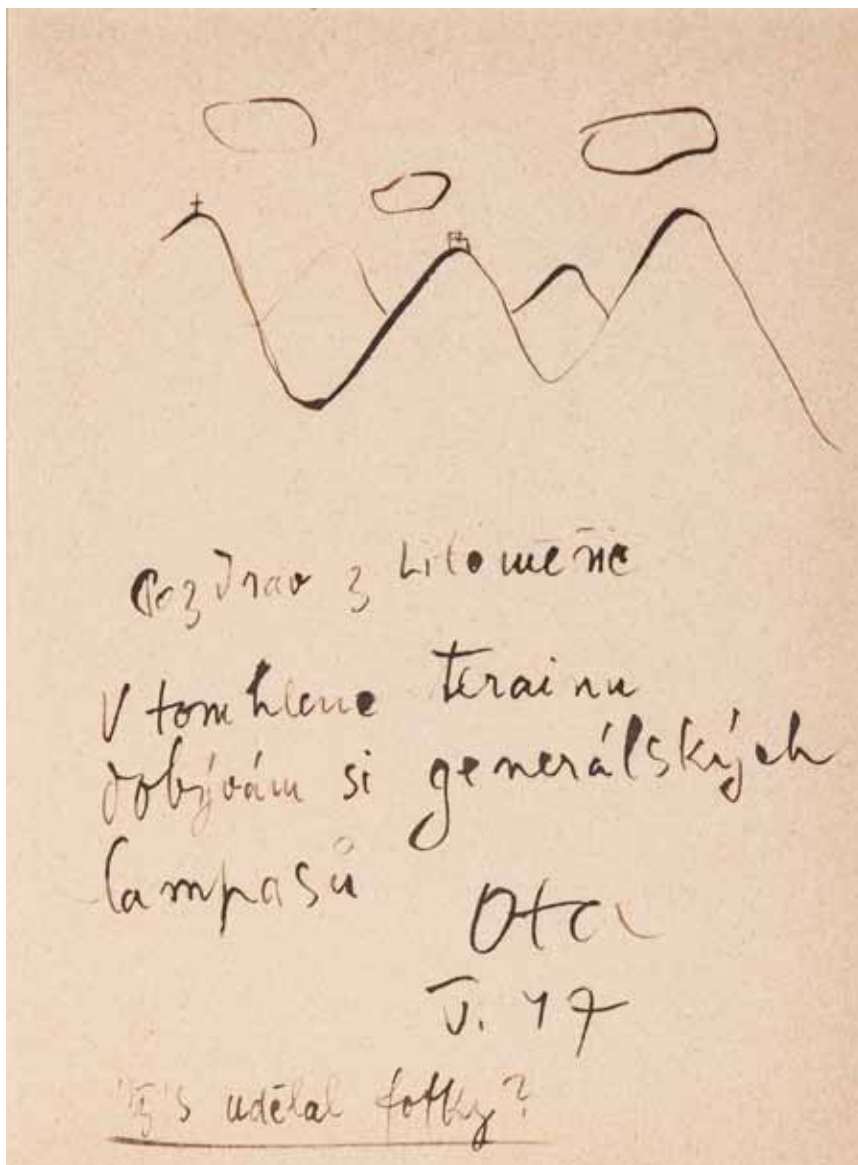 Pozdrav z Litoměřic
V tomhlene terainu
dobývám si generálských
lampasů
Ota
V. 47
udělal fotky?